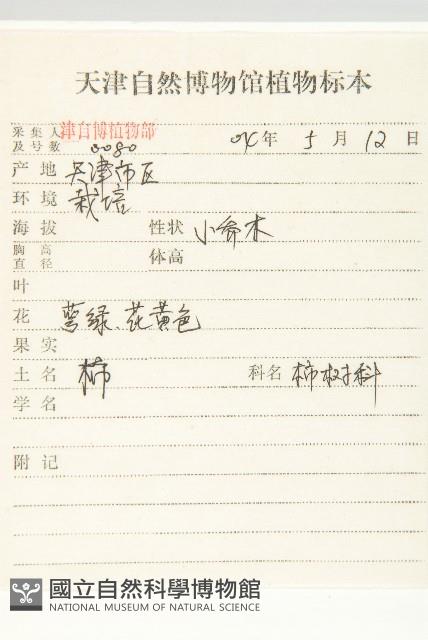 天津自然博物馆植物标本
采集人及号数 津自博植物部 0080 04年 5月 12日
产地 天津市区
环境 栽培
海拔 性状 小乔木
胸高直径 体高
叶
花 萼绿、花黄色
果实
土名 柿 科名 柿树科
学名
附记
國立自然科學博物館
NATIONAL MUSEUM OF NATURAL SCIENCE